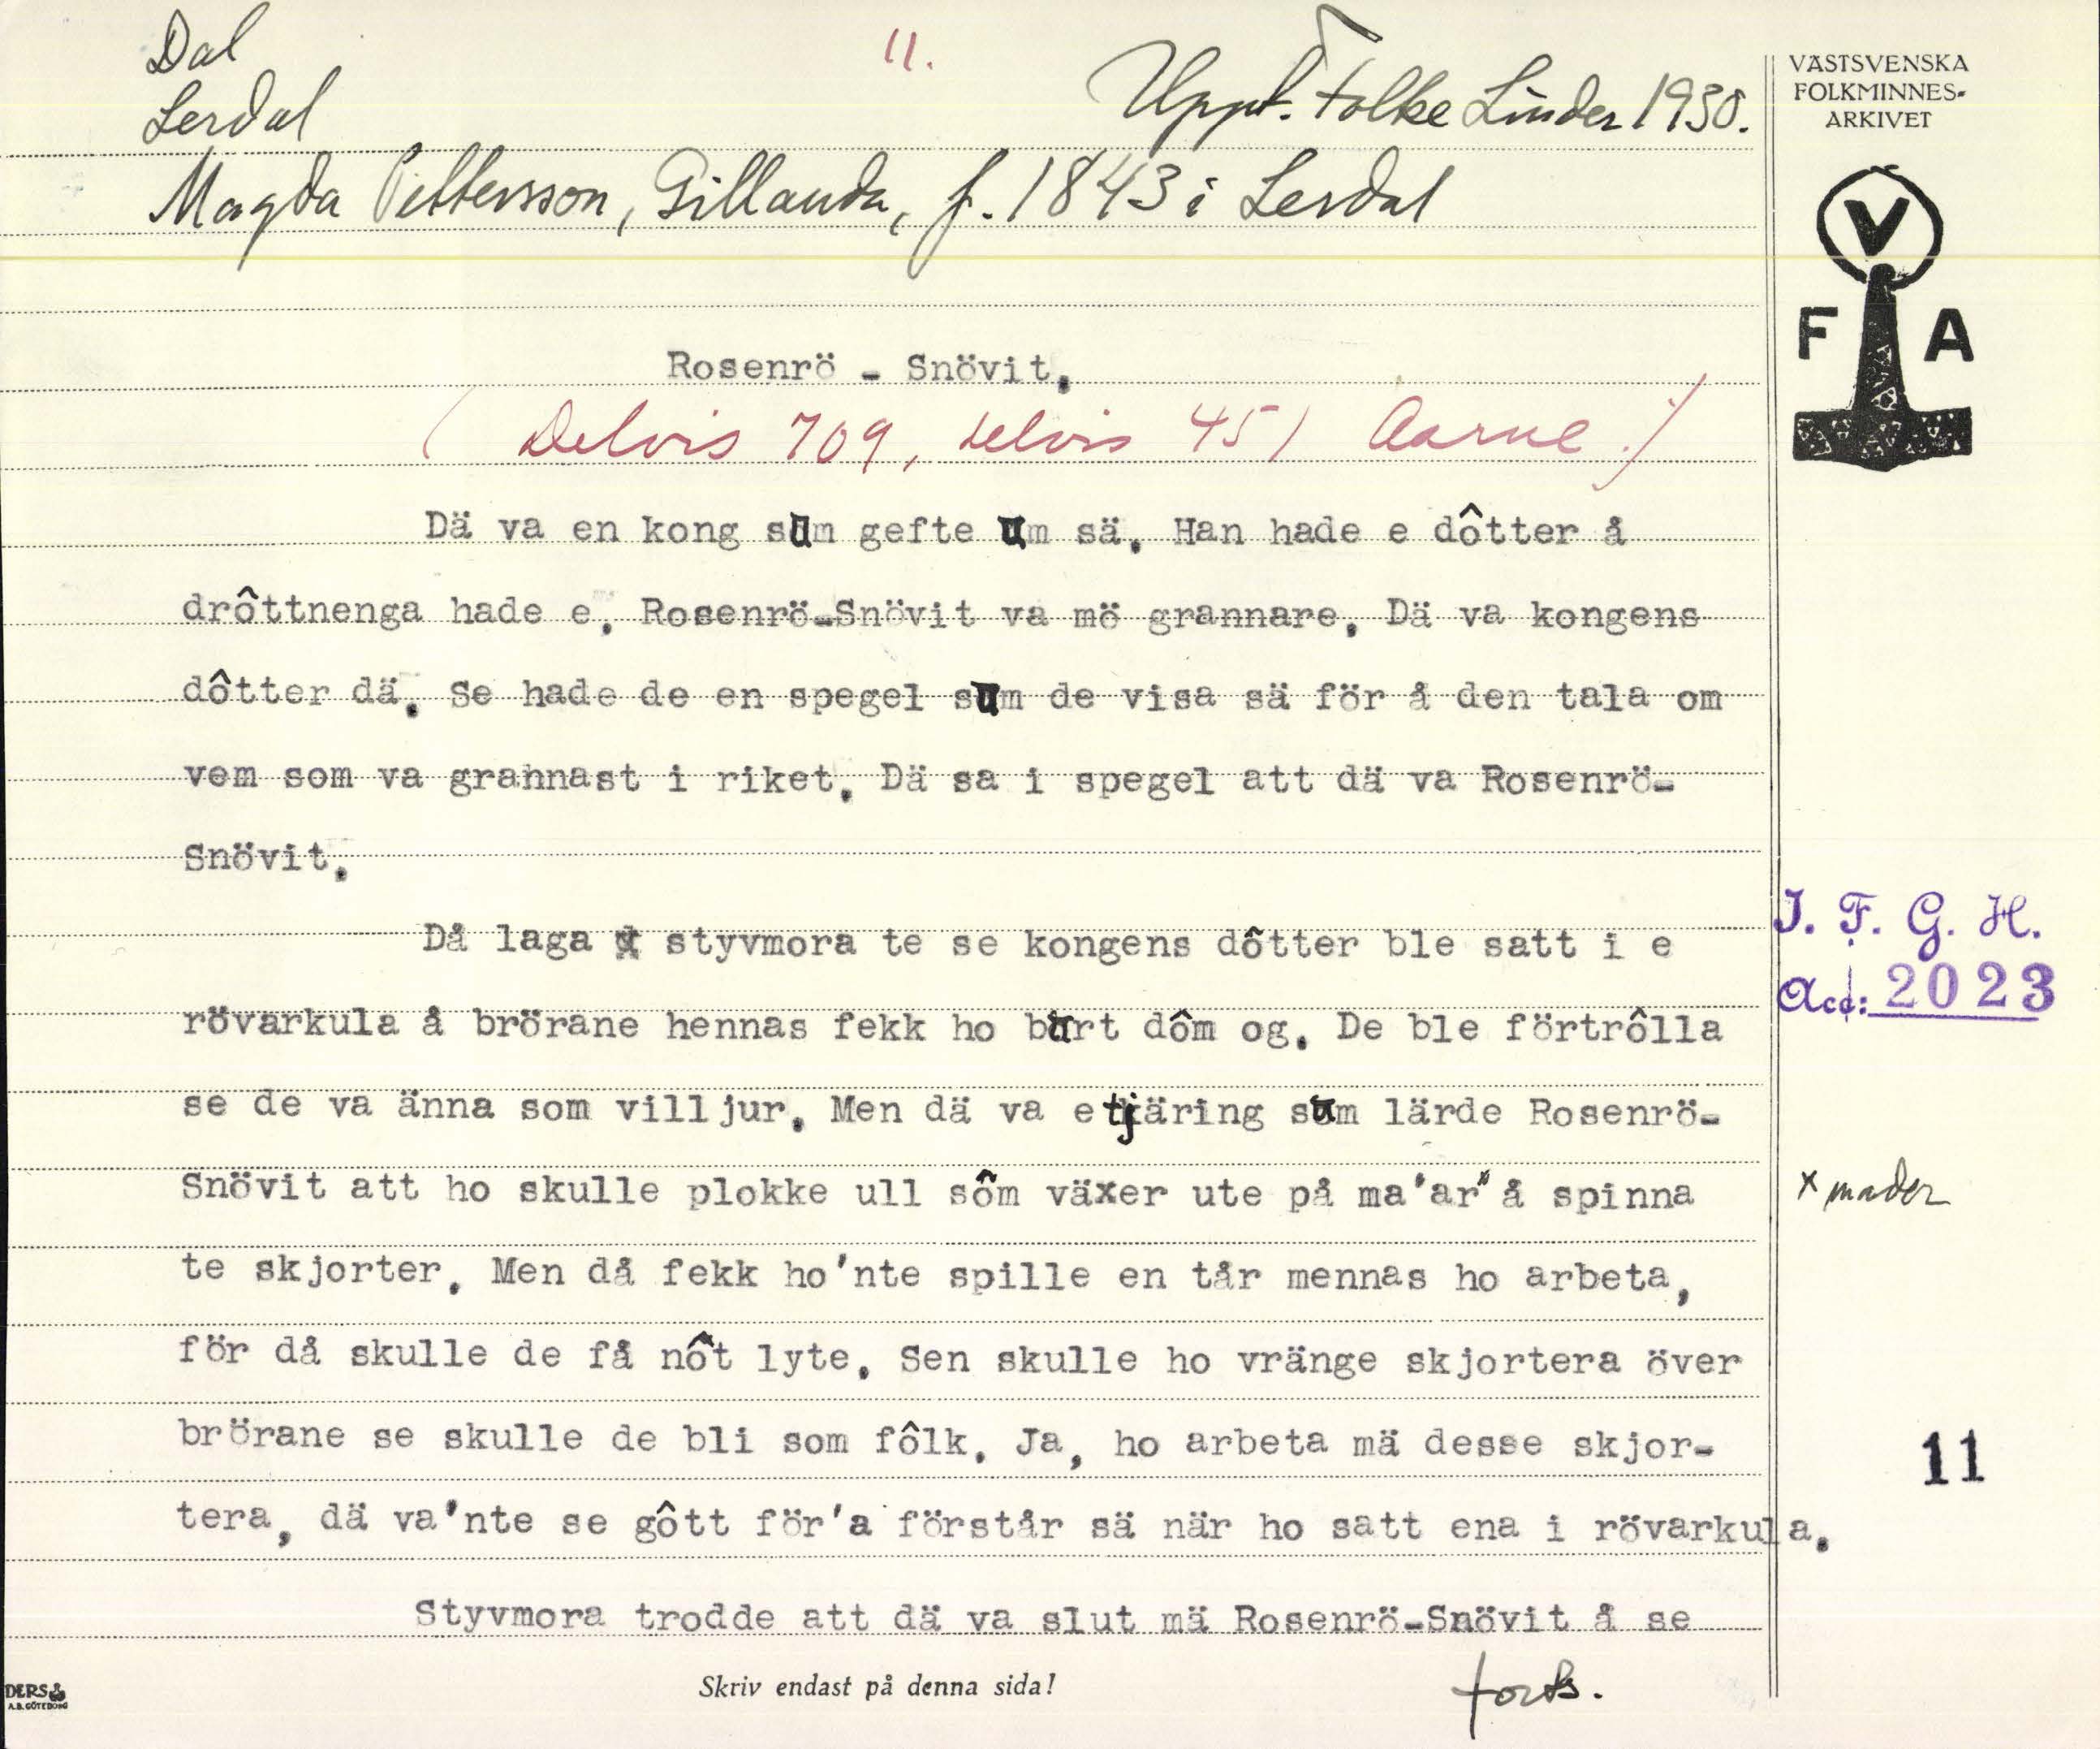 Dal
11.
Uppt. Folke Linder 1930.
Lerdal
Magda Pettersson, Gillanda, f. 1843 i Lerdal
VÄSTSVENSKA
FOLKMINNES-
ARKIVET
V
F A
Rosenrö - Snövit.
( Delvis 709, delvis 451 Aarne.)
Dä va en kong sum gefte um sä. Han hade e dôtter å
drôttnenga hade e. Rosenrö-Snövit va mö grannare. Dä va kongens
dôtter dä. Se hade de en spegel sum de visa sä för å den tala om
vem som va grannast i riket. Dä sa i spegel att dä va Rosenrö-
Snövit.
Då laga styvmora te se kongens dôtter ble satt i e
rövarkula å brörane hennas fekk ho burt dôm og. De ble förtrôlla
se de va änna som villjur. Men dä va e tjäring sum lärde Rosenrö-
Snövit att ho skulle plokke ull sôm växer ute på ma'ar x å spinna
te skjorter. Men då fekk ho'nte spille en tår mennas ho arbeta,
för då skulle de få nôt lyte. Sen skulle ho vränge skjortera över
brörane se skulle de bli som fôlk. Ja, ho arbeta mä desse skjor-
tera, dä va'nte se gôtt för'a förstår sä när ho satt ena i rövarkula.
Styvmora trodde att dä va slut mä Rosenrö-Snövit å se
forts.
I. F. G. H.
Acc: 2023
x mader
11
Skriv endast på denna sida!
DERS
A.B. GÖTEBORG